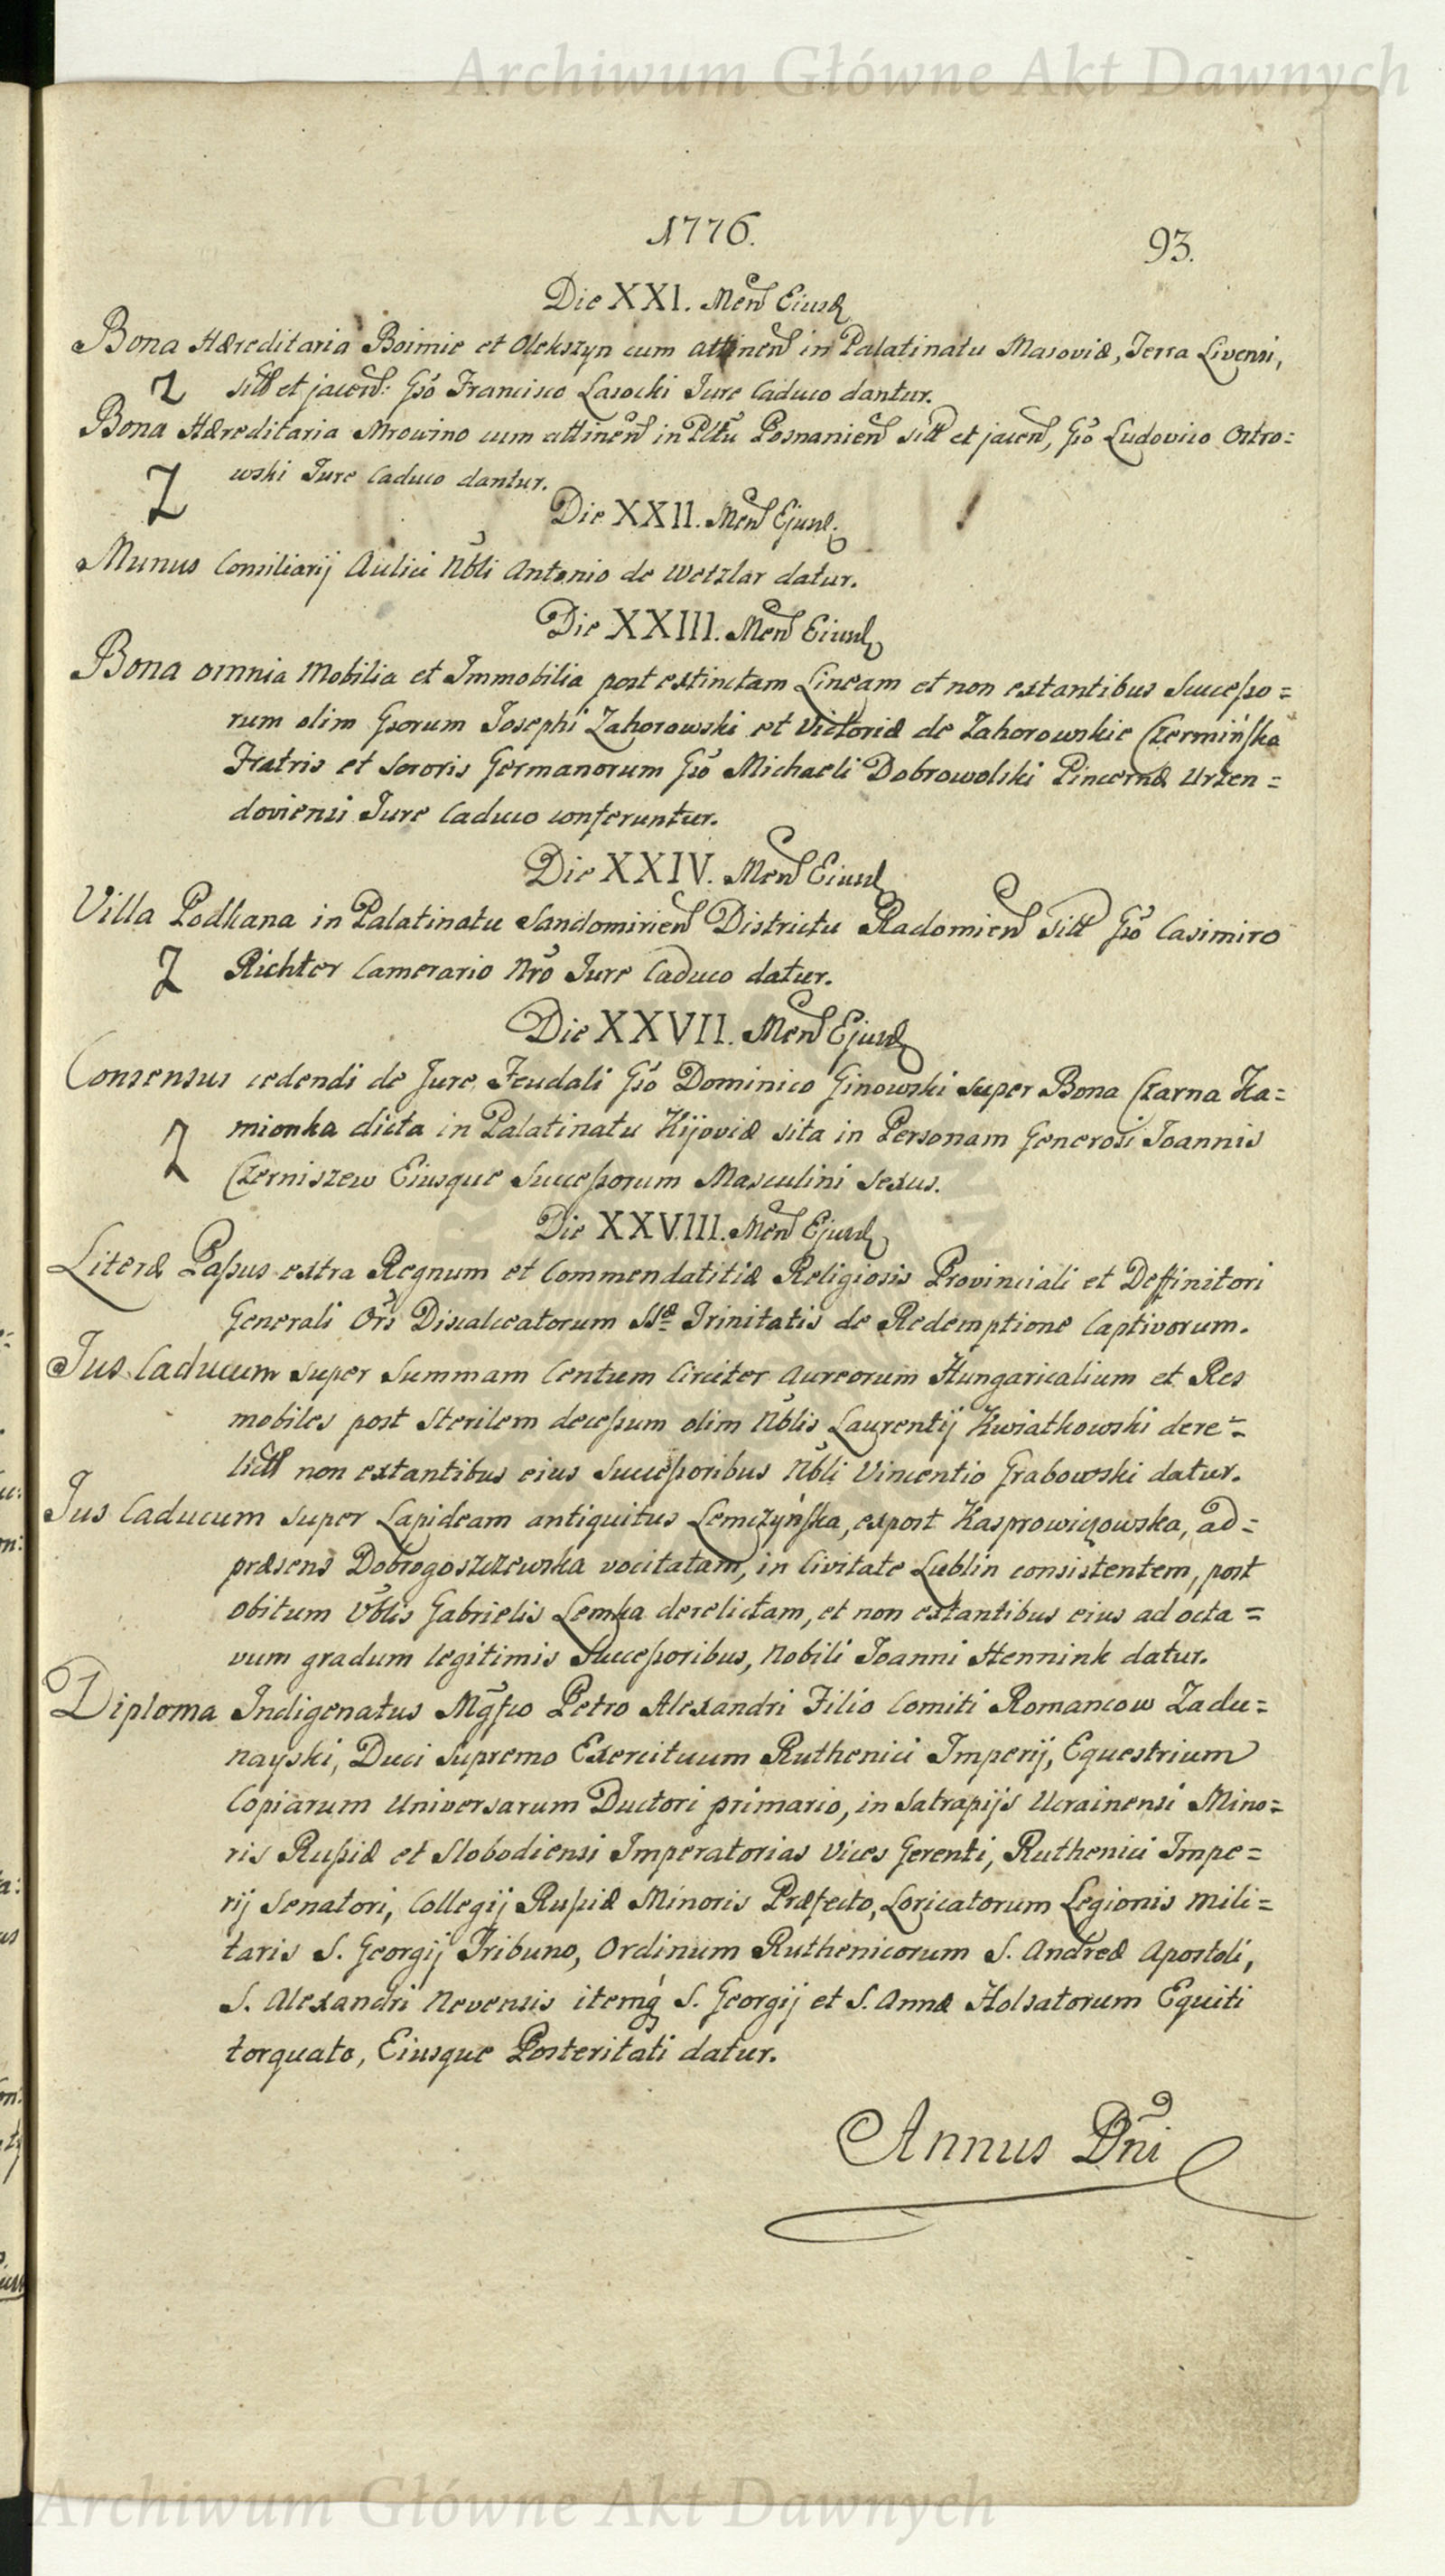 Archiwum Główne Akt Dawnych
1776.
93.
Die XXI. Men Eiusd
Bona Hæreditaria Boimie et Olekszyn cum attinen in Palatinatu Masoviæ, Terra Livensi,
sitt et jacen: Gso Francisco Lasocki Jure Caduco dantur.
Bona Hæreditaria Mrowino cum attinen in Pltu Posnanien sitt et jacen, Gso Ludovico Ostro=
wski Jure Caduco dantur.
Die XXII. Men Ejusd.
Munus Consiliarij Aulici Nbli Antonio de Wetzlar datur.
Die XXIII. Men Eiusd
Bona omnia Mobilia et Immobilia post extinctam Lineam et non extantibus Successo=
rum olim Gsorum Josephi Zahorowski et Victoriæ de Zahorowskie Czermińska
Fratris et Sororis Germanorum Gso Michaeli Dobrowolski Pincernæ Urzen=
doviensi Jure Caduco conferuntur.
Die XXIV. Men Eiusd
Villa Podkana in Palatinatu Sandomirien Districtu Radomien sitt Gso Casimiro
Richter Camerario Nro Jure Caduco datur.
Die XXVII. Men Ejusd
Consensus cedendi de Jure Feudali Gso Dominico Ginowski super Bona Czarna Ka=
mionka dicta in Palatinatu Kijoviæ sita in Personam Generosi Joannis
Czerniszew Eiusque Successorum Masculini Sexus.
Die XXVIII. Men Ejusd
Literæ Passus extra Regnum et Commendatitiæ Religiosis Provinciali et Deffinitori
Generali Oris Discalceatorum SSæ Trinitatis de Redemptione Captivorum.
Jus Caducum super Summam Centum Circiter Aureorum Hungaricalium et Res
mobiles post Sterilem decessum olim Nblis Laurentij Kwiatkowski dere=
lictt non extantibus eius Successoribus Nbli Vincentio Grabowski datur.
Jus Caducum super Lapideam antiquitus Lemczyńska, expost Kasprowiczowska, ad=
præsens Dobrogoszczewska vocitatam, in Civitate Lublin consistentem, post
obitum Nblis Gabrielis Lemka derelictam, et non extantibus eius ad octa=
vum gradum legitimis Successoribus, Nobili Joanni Hennink datur.
Diploma Indigenatus Mgfco Petro Alexandri Filio Comiti Romancow Zadu=
nayski, Duci Supremo Exercituum Ruthenici Imperij, Equestrium
Copiarum Universarum Ductori primario, in Satrapijs Ucrainensi Mino=
ris Russiæ et Slobodiensi Imperatorias Vices Gerenti, Ruthenici Impe=
rij Senatori, Collegij Russiæ Minoris Præfecto, Loricatorum Legionis mili=
taris S. Georgij Tribuno, Ordinum Ruthenicorum S. Andreæ Apostoli,
S. Alexandri Nevensis itemq S. Georgij et S. Annæ Holsatorum Equiti
torquato, Eiusque Posteritati datur.
Annus Dni
Archiwum Główne Akt Dawnych